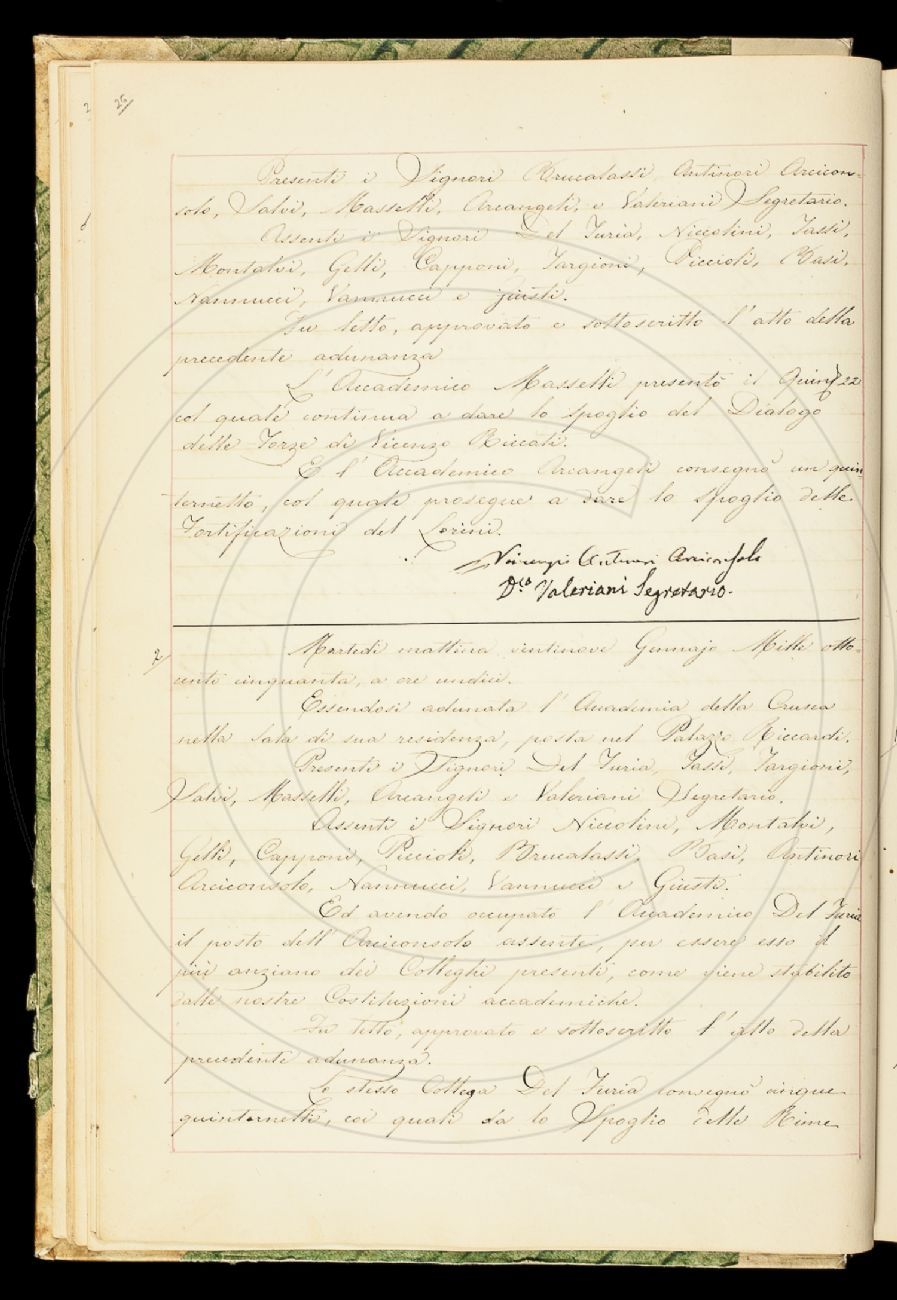 26
Presenti i Signori Brucalassi, Antinori Arcicon=
solo, Salvi, Masselli, Arcangeli, e Valeriani Segretario.
Assenti i Signori Del Furia, Niccolini, Tassi,
Montalvi, Gelli, Capponi, Targioni, Piccioli, Basi,
Nannucci, Vannucci e Giusti.
Fu letto, approvato e sottoscritto l'atto della
precedente adunanza
L'Accademico Masselli presentò il 22
col quale continua a dare lo spoglio del Dialogo
delle Forze di Vicenzo Riccati.
E l'Accademico Arcangeli consegnò un quin
ternetto, col quale prosegue a dare lo spoglio delle
Fortificazioni del Lorini.
Antinori Arciconsolo
D.co Valeriani Segretario.
2
Martedì mattina ventinove Gennajo Mille otto=
cento cinquanta, a ore undici.
Essendosi adunata l'Accademia della Crusca
nella sala di sua residenza, posta nel Palazzo Riccardi.
Presenti i Signori Del Furia, Tassi, Targioni,
Salvi, Masselli, Arcangeli e Valeriani Segretario.
Assenti i Signori Niccolini, Montalvi,
Gelli, Capponi, Piccioli, Brucalassi, Basi, Antinori
Arciconsolo, Nannucci, Vannucci e Giusti.
Ed avendo occupato l'Accademico Del Furia
il posto dell'Arciconsolo assente, per essere esso il
più anziano dei Colleghi presenti, come viene stabilito
dalle nostre Costituzioni accademiche.
Fu letto, approvato e sottoscritto l'atto della
precedente adunanza.
Lo stesso Collega Del Furia consegnò cinque
quinternetti, coi quali dà lo Spoglio delle Rime